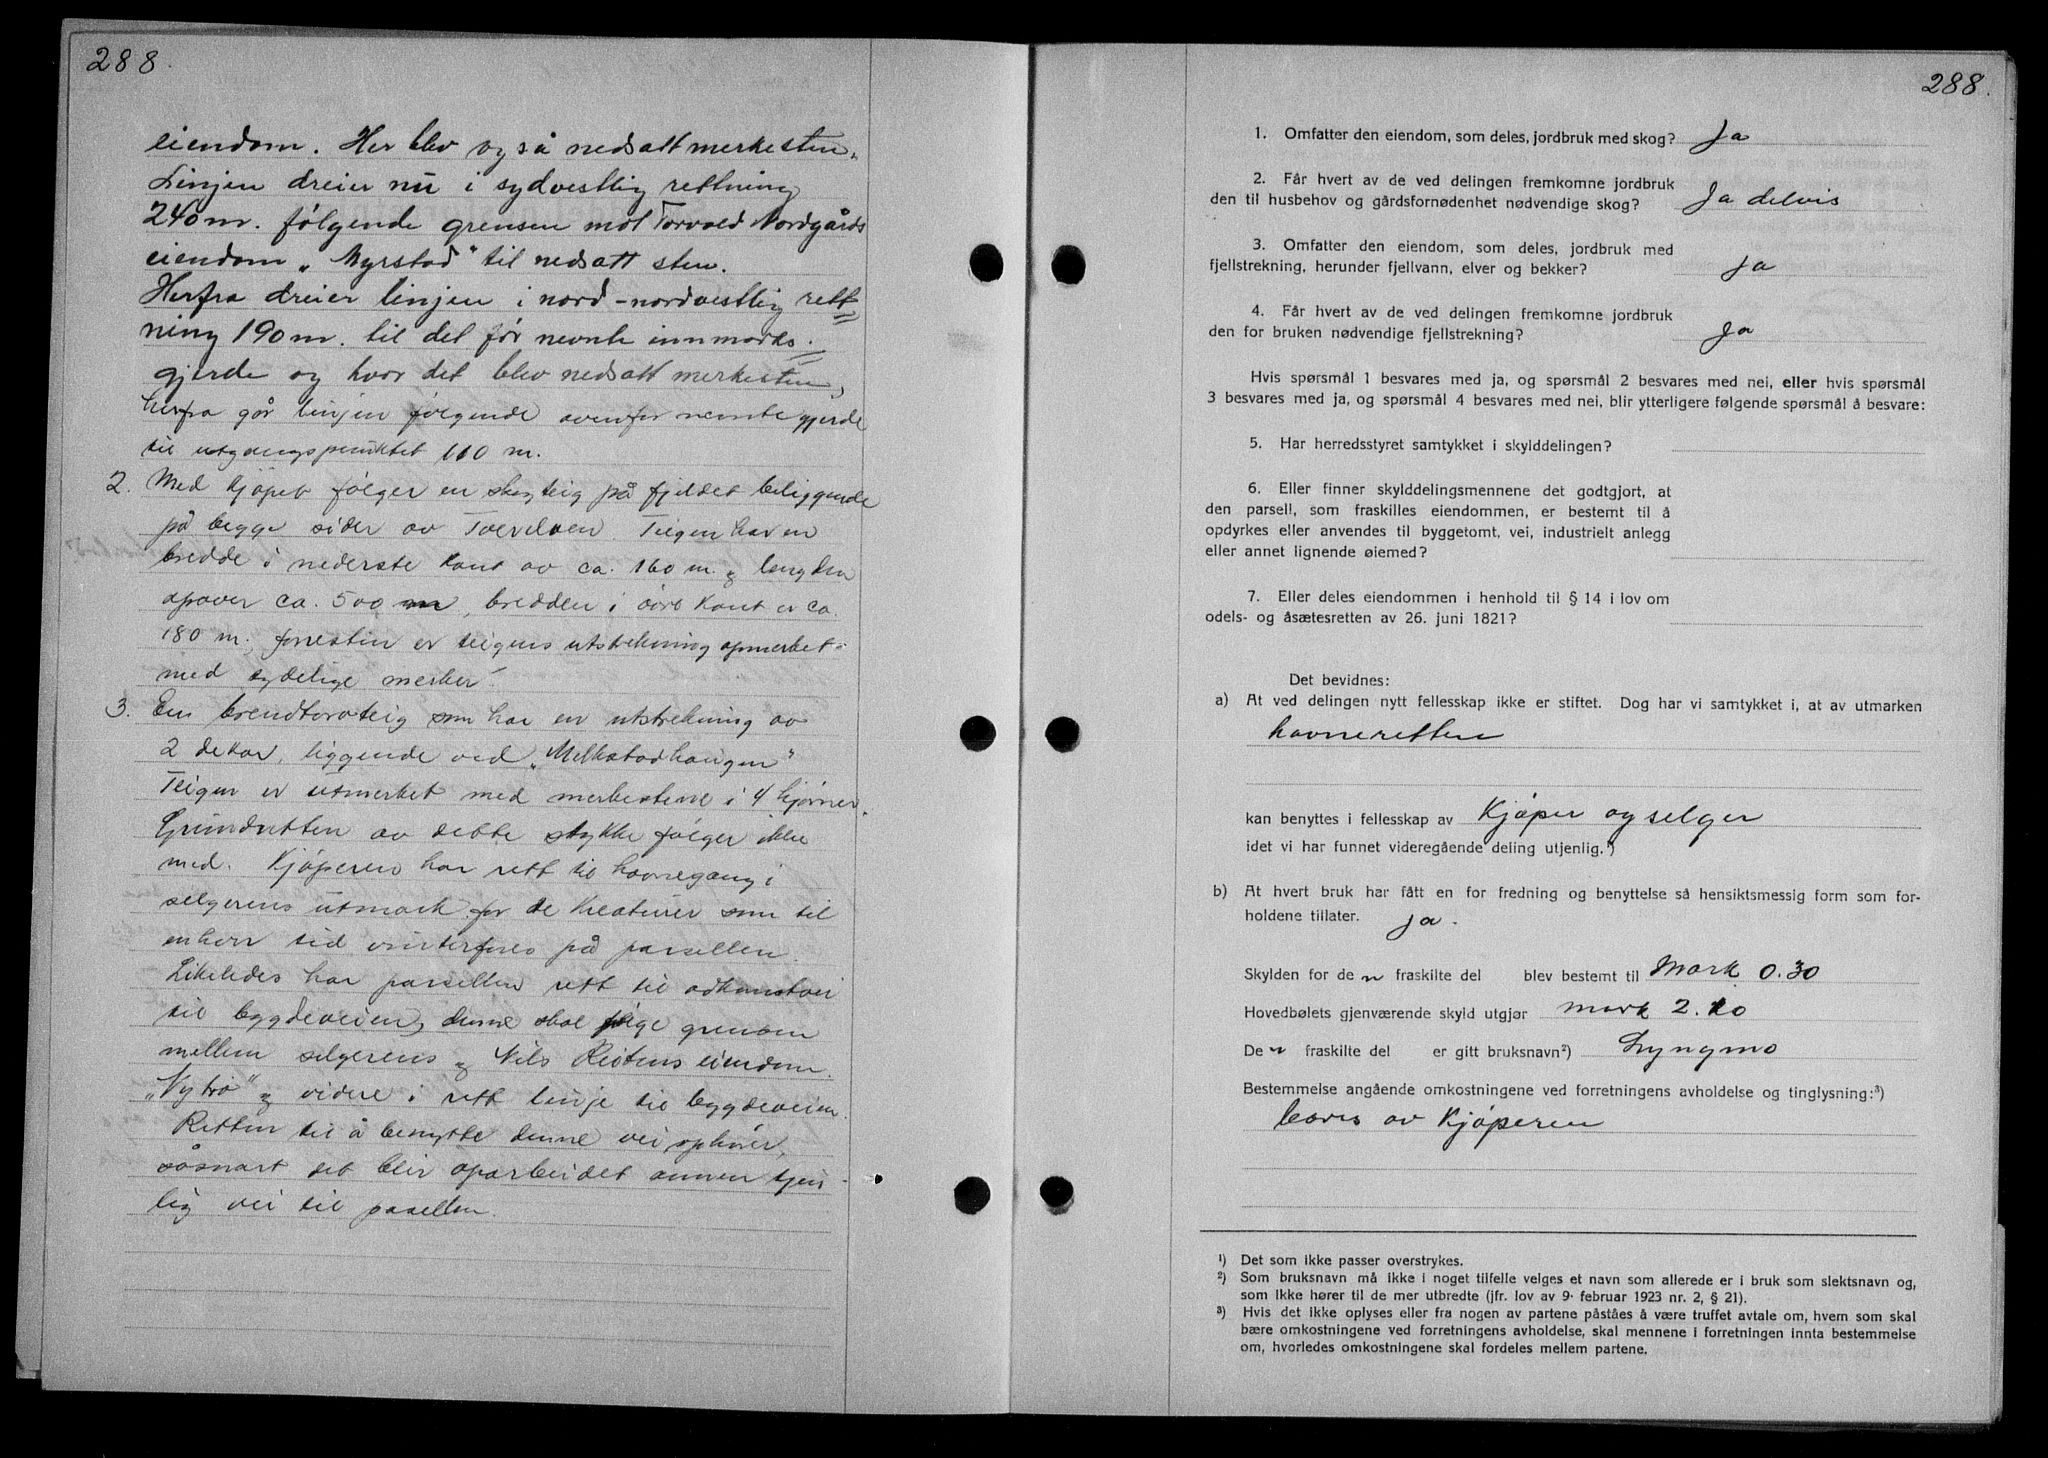 288.
eiendom. Her blev også nedsatt merkesten.
Linjen dreier nu i sydvestlig rettning
240 m. følgende grensen mot Torvald Nordgårds
eiendom „Myrstad" til nedsatt sten.
Herfra dreier linjen i nord-nordvestlig rett
ning 190 m. til det før nevnte innmarks.
gjerde og hvor det blev nedsatt merkesten,
herfra går linjen følgende ovenfor nevnte gjerde
til utgangspunktet 110 m.
2. Med kjøpet følger en skogteig på fjeldet beliggende
på begge sider av Tverelven. Teigen har en
bredde i nederste kant av ca. 160 m. og lengden
opover ca. 500 m, bredden i øvre kant er ca.
180 m, forresten er teigens utstrekning opmerket
med tydelige merker.
3. En brendtorvteig som har en utstrekning av
2 dekar, liggende ved „Melkstadhaugen"
Teigen er utmerket med merkestene i 4 hjørner.
Grundretten av dette stykke følger ikke
med. Kjøperen har rett til havnegang i
selgerens utmark for de kreaturer som til
enhver tid vinterfores på parsellen.
Likeledes har parsellen rett til adkomstvei
til bygdeveien, denne skal følge grensen
mellem selgerens og Nils Reotens eiendom.
„Nytrø" og videre i rett linje til bygdeveien.
Retten til å benytte denne vei ophører,
såsnart det blir oparbeidet annen tjen
lig vei til parsellen.
288.
1. Omfatter den eiendom, som deles, jordbruk med skog? Ja
2. Får hvert av de ved delingen fremkomne jordbruk
den til husbehov og gårdsfornødenhet nødvendige skog? Ja delvis
3. Omfatter den eiendom, som deles, jordbruk med
fjellstrekning, herunder fjellvann, elver og bekker? Ja
4. Får hvert av de ved delingen fremkomne jordbruk
den for bruken nødvendige fjellstrekning? Ja
Hvis spørsmål 1 besvares med ja, og spørsmål 2 besvares med nei, eller hvis spørsmål
3 besvares med ja, og spørsmål 4 besvares med nei, blir ytterligere følgende spørsmål å besvare:
5. Har herredsstyret samtykket i skylddelingen?
6. Eller finner skylddelingsmennene det godtgjort, at
den parsell, som fraskilles eiendommen, er bestemt til å
opdyrkes eller anvendes til byggetomt, vei, industrielt anlegg
eller annet lignende øiemed?
7. Eller deles eiendommen i henhold til § 14 i lov om
odels- og åsætesretten av 26. juni 1821?
Det bevidnes:
a) At ved delingen nytt fellesskap ikke er stiftet. Dog har vi samtykket i, at av utmarken
havneretten
kan benyttes i fellesskap av Kjøper og selger
idet vi har funnet videregående deling utjenlig.¹)
b) At hvert bruk har fått en for fredning og benyttelse så hensiktsmessig form som for-
holdene tillater. Ja.
Skylden for de n fraskilte del blev bestemt til Mark 0.30
Hovedbølets gjenværende skyld utgjør mark 2.10
De n fraskilte del er gitt bruksnavn²) Lyngmo
Bestemmelse angående omkostningene ved forretningens avholdelse og tinglysning:³)
bæres av Kjøperen
¹) Det som ikke passer overstrykes.
²) Som bruksnavn må ikke i noget tilfelle velges et navn som allerede er i bruk som slektsnavn og,
som ikke hører til de mer utbredte (jfr. lov av 9. februar 1923 nr. 2, § 21).
³) Hvis det ikke oplyses eller fra nogen av partene påståes å være truffet avtale om, hvem som skal
bære omkostningene ved forretningens avholdelse, skal mennene i forretningen innta bestemmelse
om, hvorledes omkostningene skal fordeles mellem partene.